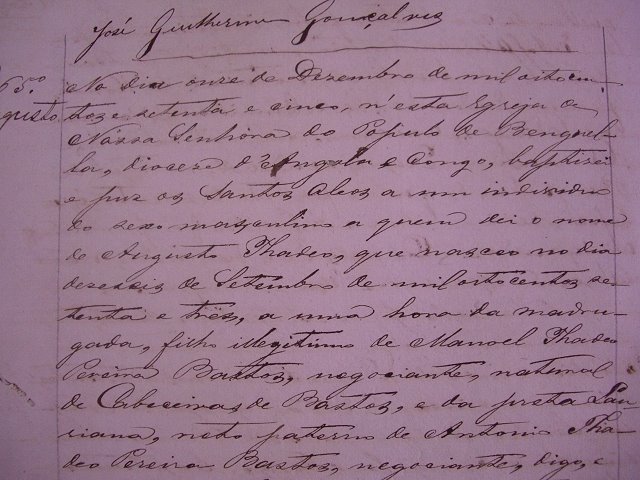 José Guilherme Gonçalves
65.º No dia onze de Dezembro de mil oitocen-
gusto tos e setenta e cinco, n'esta Egreja de
Nossa Senhora do Populo de Benguel-
la, diocese d'Angola e Congo, baptizei
e puz os Santos Oleos a um individuo
do sexo masculino a quem dei o nome
de Augusto Thadeo, que nasceo no dia
dezeseis de Setembro de mil oitocentos se-
tenta e três, a uma hora da madru-
gada, filho illegitimo de Manoel Thadeo
Pereira Bastos, negociante, natural
de Cabeceiras de Bastos, e da preta Lau-
riana, neto paterno de Antonio Tha-
deo Pereira Bastos, negociante, digo, e